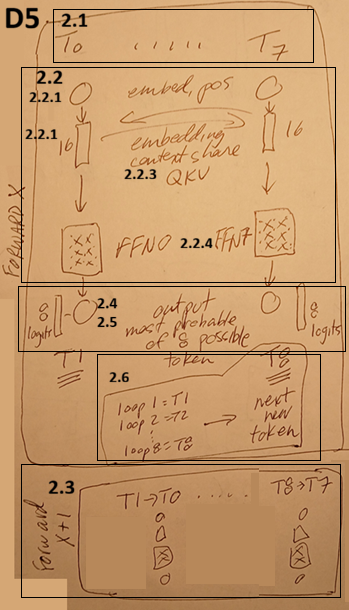 D5
2.1
T0 ..... T7
2.2
2.2.1
embed, pos
2.2.1
16
16
embedding
context share
2.2.3
QKV
FORWARD X
FFN0
2.2.4
FFN7
8
logits
2.4
2.5
output
most probable
of 8 possible
token
8
logits
T1
T8
2.6
loop 1 = T1
loop 2 = T2
loop 8 = T8
next
new
token
2.3
Forward
X+1
T1→T0 ..... T8→T7